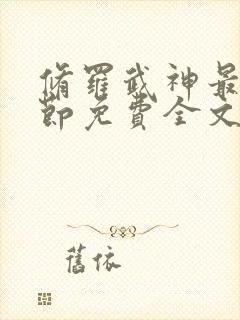 脩羅武神最
節免費全文
舊依